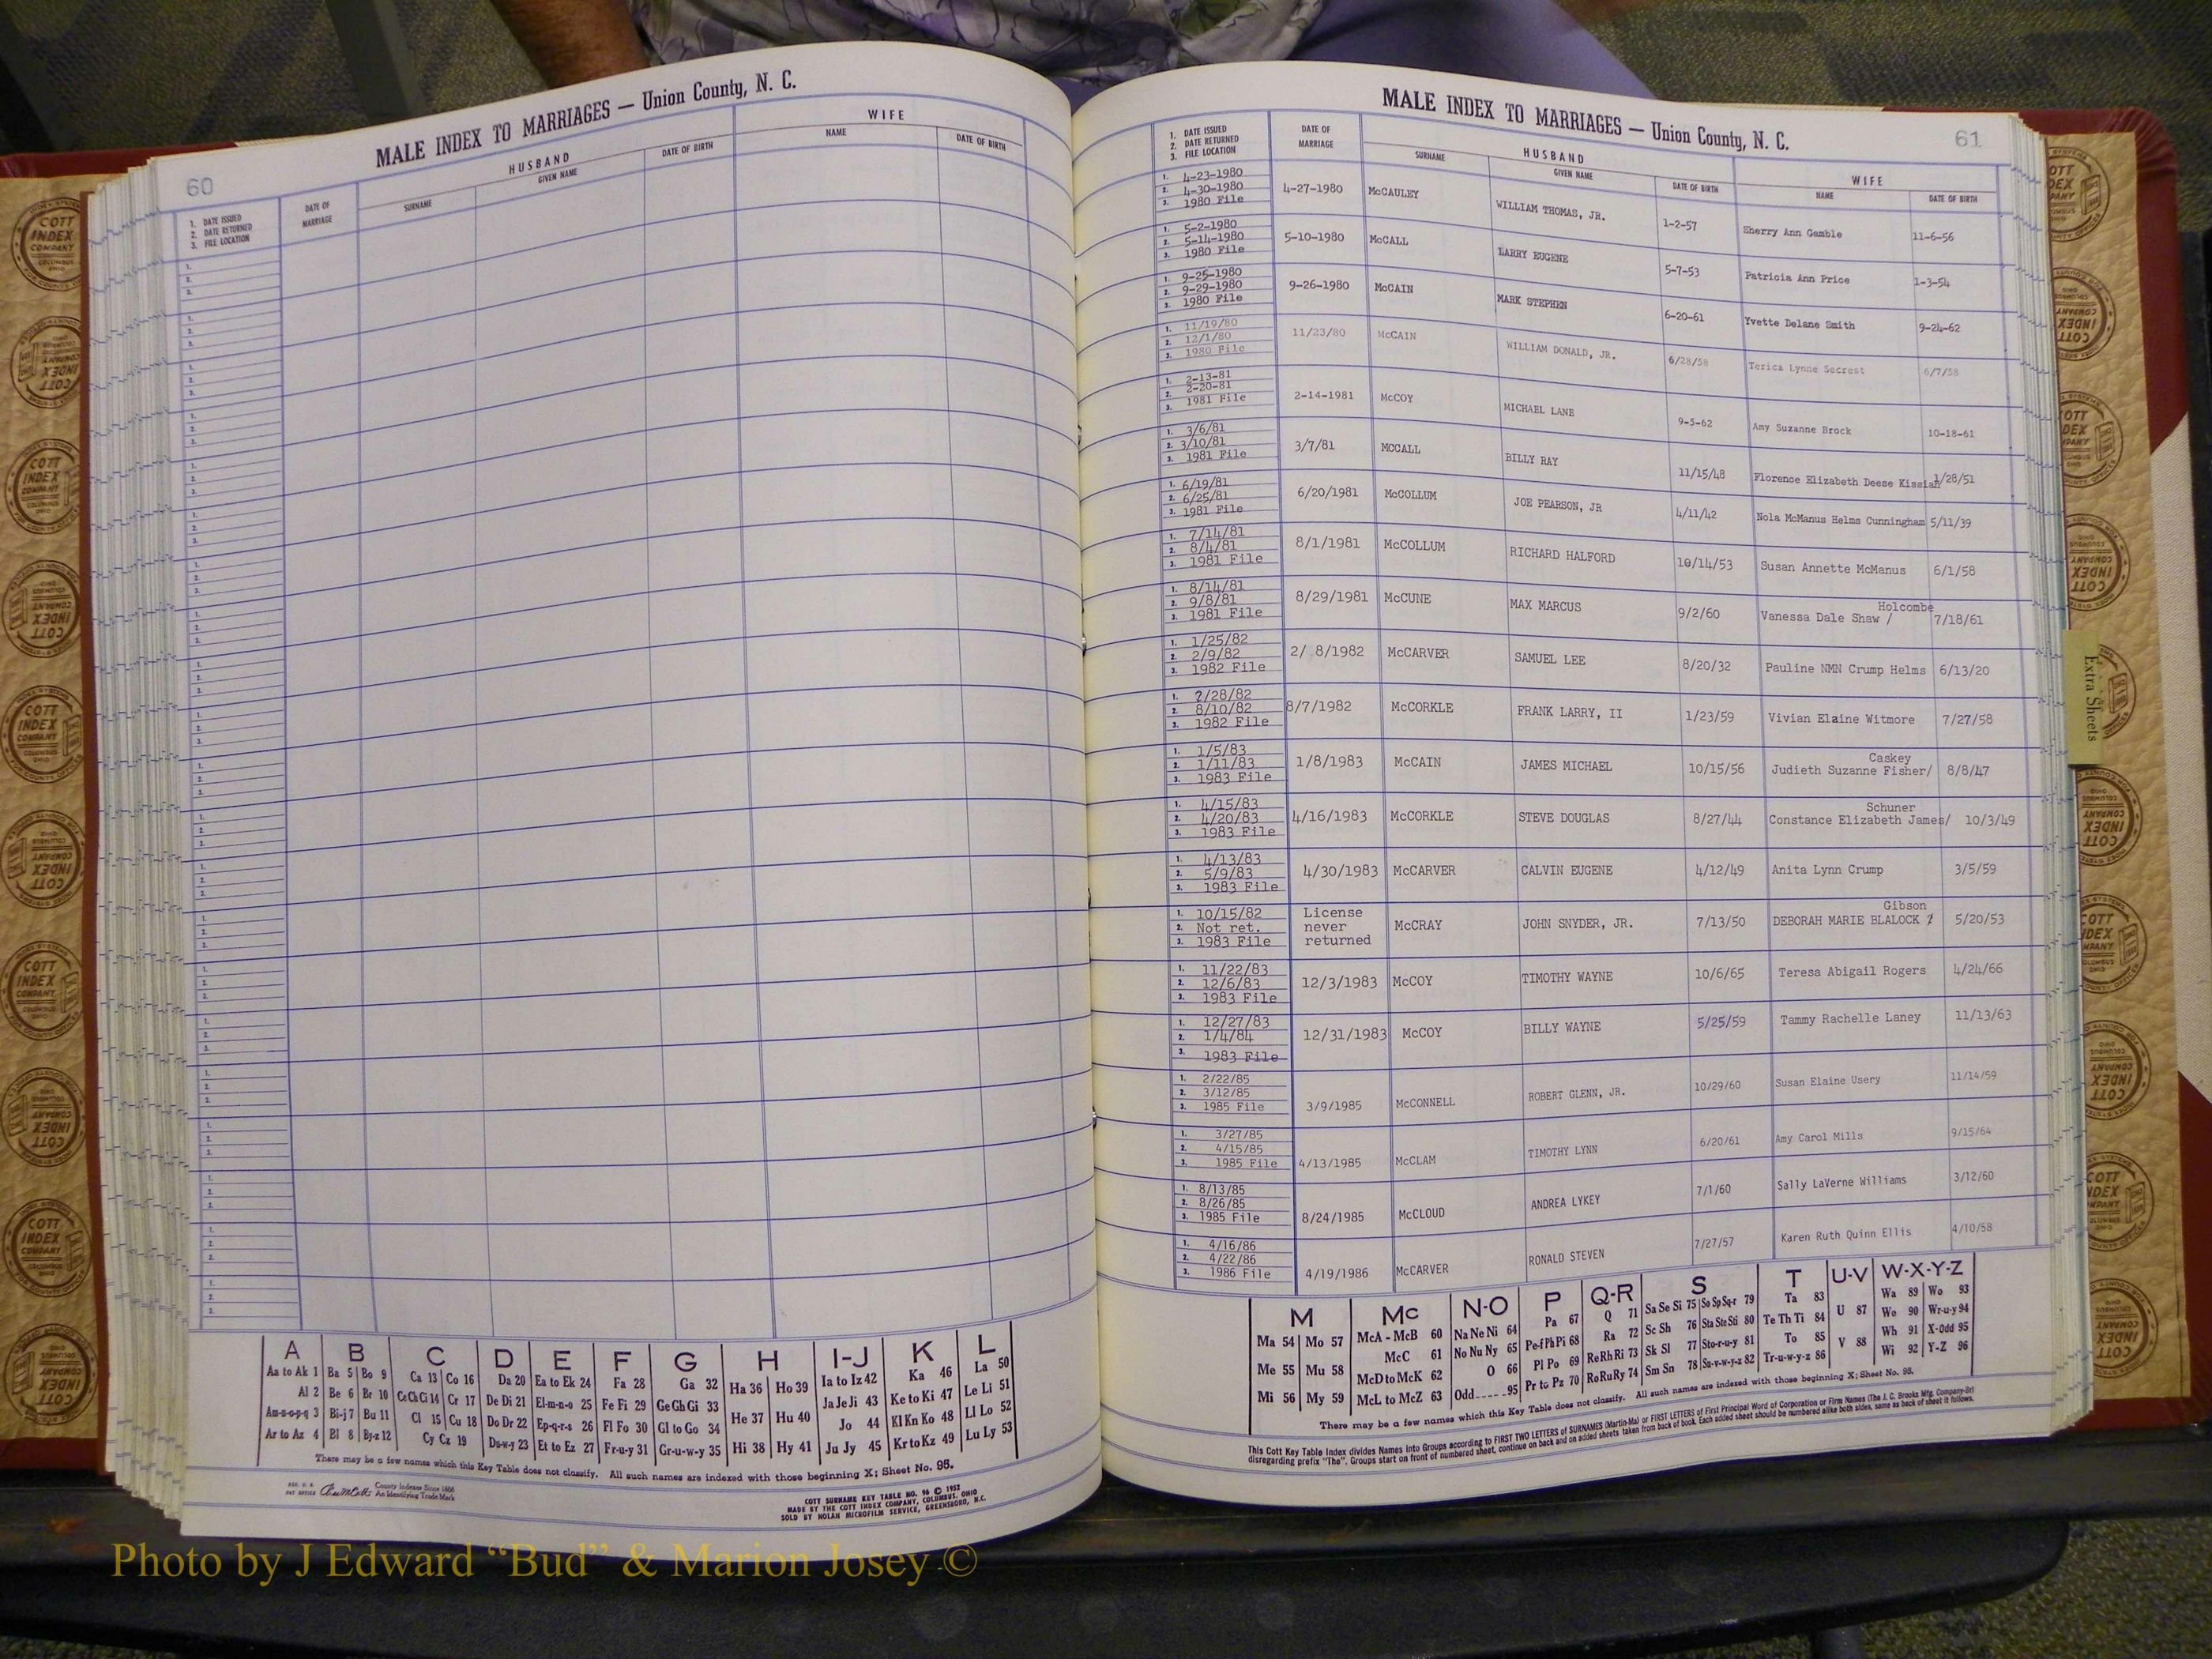 MALE INDEX TO MARRIAGES — Union County, N. C.
60
1. DATE ISSUED
2. DATE RETURNED
3. FILE LOCATION
DATE OF MARRIAGE
HUSBAND
SURNAME
GIVEN NAME
DATE OF BIRTH
WIFE
NAME
DATE OF BIRTH
A B C D E F G H I-J K L
Aa to Ak 1 Ba 5 Bo 9 Ca 13 Co 16 Da 20 Ea to Ek 24 Fa 28 Ga 32 Ha 36 Ho 39 Ia to Iz 42 Ka 46 La 50
Al 2 Be 6 Br 10 Ce Ch Ci 14 Cr 17 De Di 21 El-m-n-o 25 Fe Fi 29 Ge Gh Gi 33 He 37 Hu 40 Ja Je Ji 43 Ke to Ki 47 Le Li 51
Am-n-o-p-q 3 Bi-j 7 Bu 11 Cl 15 Cu 18 Do Dr 22 Ep-q-r-s 26 Fl Fo 30 Gl to Go 34 Hi 38 Hy 41 Jo 44 Kl Kn Ko 48 Ll Lo 52
Ar to Az 4 Bl 8 By-z 12 Cy Cz 19 Du-w-y 23 Et to Ez 27 Fr-u-y 31 Gr-u-w-y 35 Ju Jy 45 Kr to Kz 49 Lu Ly 53
There may be a few names which this Key Table does not classify. All such names are indexed with those beginning X; Sheet No. 95.
County Indexes Since 1888
An Identifying Trade Mark
COTT SURNAME KEY TABLE NO. 96 © 1952
MADE BY THE COTT INDEX COMPANY, COLUMBUS, OHIO
SOLD BY NOLAN MICROFILM SERVICE, GREENSBORO, N.C.
MALE INDEX TO MARRIAGES — Union County, N. C.
61
1. DATE ISSUED
2. DATE RETURNED
3. FILE LOCATION
DATE OF MARRIAGE
HUSBAND
SURNAME
GIVEN NAME
DATE OF BIRTH
WIFE
NAME
DATE OF BIRTH
1. 4-23-1980
2. 4-30-1980
3. 1980 File
4-27-1980 McCAULEY WILLIAM THOMAS, JR. 1-2-57 Sherry Ann Gamble 11-6-56
1. 5-2-1980
2. 5-14-1980
3. 1980 File
5-10-1980 McCALL LARRY EUGENE 5-7-53 Patricia Ann Price 1-3-54
1. 9-25-1980
2. 9-29-1980
3. 1980 File
9-26-1980 McCAIN MARK STEPHEN 6-20-61 Yvette Delane Smith 9-24-62
1. 11/19/80
2. 12/1/80
3. 1980 File
11/23/80 McCAIN WILLIAM DONALD, JR. 6/28/58 Terica Lynne Secrest 6/7/58
1. 2-13-81
2. 2-20-81
1981 File
3.
2-14-1981 McCOY MICHAEL LANE 9-5-62 Amy Suzanne Brock 10-18-61
1. 3/6/81
2. 3/10/81
3. 1981 File
3/7/81 MCCALL BILLY RAY 11/15/48 Florence Elizabeth Deese Kissiah 1/28/51
1. 6/19/81
2. 6/25/81
3. 1981 File
6/20/1981 McCOLLUM JOE PEARSON, JR 4/11/42 Nola McManus Helms Cunningham 5/11/39
1. 7/14/81
2. 8/4/81
3. 1981 File
8/1/1981 McCOLLUM RICHARD HALFORD 10/14/53 Susan Annette McManus 6/1/58
1. 8/14/81
2. 9/8/81
3. 1981 File
8/29/1981 McCUNE MAX MARCUS 9/2/60 Vanessa Dale Shaw / Holcombe 7/18/61
1. 1/25/82
2. 2/9/82
3. 1982 File
2/ 8/1982 McCARVER SAMUEL LEE 8/20/32 Pauline NMN Crump Helms 6/13/20
1. 7/28/82
2. 8/10/82
3. 1982 File
8/7/1982 McCORKLE FRANK LARRY, II 1/23/59 Vivian Elaine Witmore 7/27/58
1. 1/5/83
2. 1/11/83
3. 1983 File
1/8/1983 McCAIN JAMES MICHAEL 10/15/56 Judieth Suzanne Fisher/ Caskey 8/8/47
1. 4/15/83
2. 4/20/83
3. 1983 File
4/16/1983 McCORKLE STEVE DOUGLAS 8/27/44 Constance Elizabeth James/ Schuner 10/3/49
1. 4/13/83
2. 5/9/83
3. 1983 File
4/30/1983 McCARVER CALVIN EUGENE 4/12/49 Anita Lynn Crump 3/5/59
1. 10/15/82
2. Not ret.
3. 1983 File
License never returned McCRAY JOHN SNYDER, JR. 7/13/50 DEBORAH MARIE BLALOCK / Gibson 5/20/53
1. 11/22/83
2. 12/6/83
3. 1983 File
12/3/1983 McCOY TIMOTHY WAYNE 10/6/65 Teresa Abigail Rogers 4/24/66
1. 12/27/83
2. 1/4/84
3. 1983 File
12/31/1983 McCOY BILLY WAYNE 5/25/59 Tammy Rachelle Laney 11/13/63
1. 2/22/85
2. 3/12/85
3. 1985 File
3/9/1985 McCONNELL ROBERT GLENN, JR. 10/29/60 Susan Elaine Usery 11/14/59
1. 3/27/85
2. 4/15/85
3. 1985 File
4/13/1985 McCLAM TIMOTHY LYNN 6/20/61 Amy Carol Mills 9/15/64
1. 8/13/85
2. 8/26/85
3. 1985 File
8/24/1985 McCLOUD ANDREA LYKEY 7/1/60 Sally LaVerne Williams 3/12/60
1. 4/16/86
2. 4/22/86
3. 1986 File
4/19/1986 McCARVER RONALD STEVEN 7/27/57 Karen Ruth Quinn Ellis 4/10/58
M Mc N-O P Q-R S T U-V W-X-Y-Z
Ma 54 Mo 57 McA - McB 60 Na Ne Ni 64 Pa 67 Q 71 Sa Se Si 75 So Sp Sq-r 79 Ta 83 U 87 Wa 89 Wo 93
Me 55 Mu 58 McC 61 No Nu Ny 65 Pe-f Ph Pi 68 Ra 72 Sc Sh 76 Sta Ste Sti 80 Te Th Ti 84 V 88 We 90 Wr-u-y 94
Mi 56 My 59 McD to McK 62 O 66 Pl Po 69 Re Rh Ri 73 Sk Sl 77 Sto-r-u-y 81 To 85 Wh 91 X-Odd 95
McL to McZ 63 Odd 95 Pr to Pz 70 Ro Ru Ry 74 Sm Sn 78 Su-v-w-y-z 82 Tr-u-w-y-z 86 Wi 92 Y-Z 96
There may be a few names which this Key Table does not classify. All such names are indexed with those beginning X; Sheet No. 95.
This Cott Key Table Index divides Names into Groups according to FIRST TWO LETTERS of SURNAMES (Martin-Ma) or FIRST LETTERS of First Principal Word of Corporation or Firm Names (The J. C. Brooks Mfg. Company-Br)
disregarding prefix "The". Groups start on front of numbered sheet, continue on back and on added sheets taken from back of book. Each added sheet should be numbered alike both sides, same as back of sheet it follows.
Extra Sheets
COTT INDEX COMPANY COLUMBUS OHIO
Photo by J Edward “Bud” & Marion Josey ©